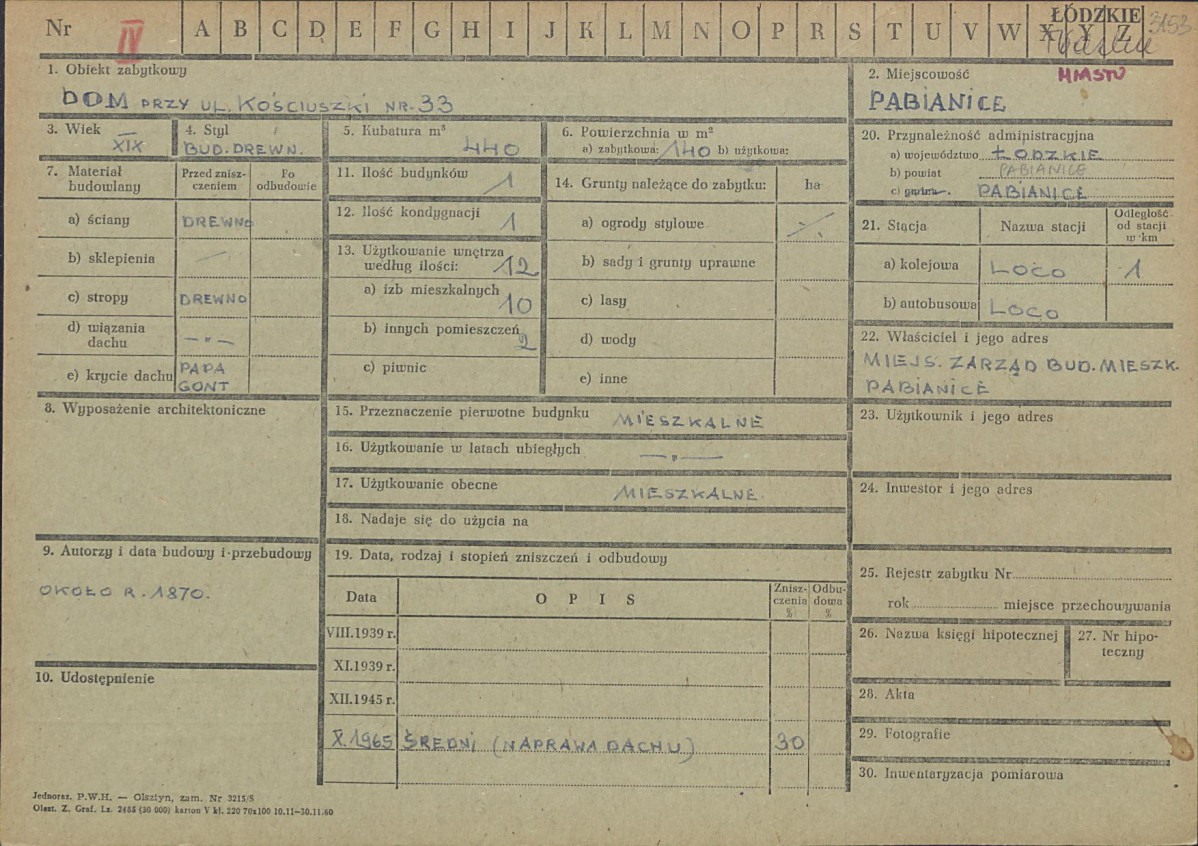 Nr IV A B C D E F G H I J K L M N O P R S T U V W X Y Z ŁÓDZKIE 3153
MIASTO
1. Obiekt zabytkowy
DOM PRZY UL. KOŚCIUSZKI NR. 33
2. Miejscowość
PABIANICE
3. Wiek
XIX
4. Styl
BUD. DREWN.
5. Kubatura m³
440
6. Powierzchnia w m²
a) zabytkowa: 140 b) użytkowa:
7. Materiał budowlany
Przed zniszczeniem
Po odbudowie
a) ściany DREWNO
b) sklepienia —
c) stropy DREWNO
d) wiązania dachu — " —
e) krycie dachu PAPA GONT
8. Wyposażenie architektoniczne
9. Autorzy i data budowy i przebudowy
OKOŁO R. 1870.
10. Udostępnienie
11. Ilość budynków
1
12. Ilość kondygnacji
1
13. Użytkowanie wnętrza
według ilości: 12
a) izb mieszkalnych
10
b) innych pomieszczeń
2
c) piwnic
14. Grunty należące do zabytku: ha
a) ogrody stylowe
b) sady i grunty uprawne
c) lasy
d) wody
e) inne
15. Przeznaczenie pierwotne budynku
MIESZKALNE
16. Użytkowanie w latach ubiegłych
— " —
17. Użytkowanie obecne
MIESZKALNE.
18. Nadaje się do użycia na
19. Data, rodzaj i stopień zniszczeń i odbudowy
Data O P I S Zniszczenia % Odbudowa %
VIII.1939 r.
XI.1939 r.
XII.1945 r.
X.1965 ŚREDNI (NAPRAWA DACHU) 30
20. Przynależność administracyjna
a) województwo ŁODZKIE
b) powiat PABIANICE
c) gmina PABIANICE
21. Stacja Nazwa stacji Odległość od stacji w km
a) kolejowa LOCO 1
b) autobusowa LOCO
22. Właściciel i jego adres
MIEJS. ZARZĄD BUD. MIESZK.
PABIANICE
23. Użytkownik i jego adres
24. Inwestor i jego adres
25. Rejestr zabytku Nr
rok miejsce przechowywania
26. Nazwa księgi hipotecznej
27. Nr hipoteczny
28. Akta
29. Fotografie
30. Inwentaryzacja pomiarowa
Jednoraz. P.W.H. — Olsztyn, zam. Nr 3215/S
Olszt. Z. Graf. Lz. 2485 (30 000) karton V kl. 220 70x100 10.11—30.11.60